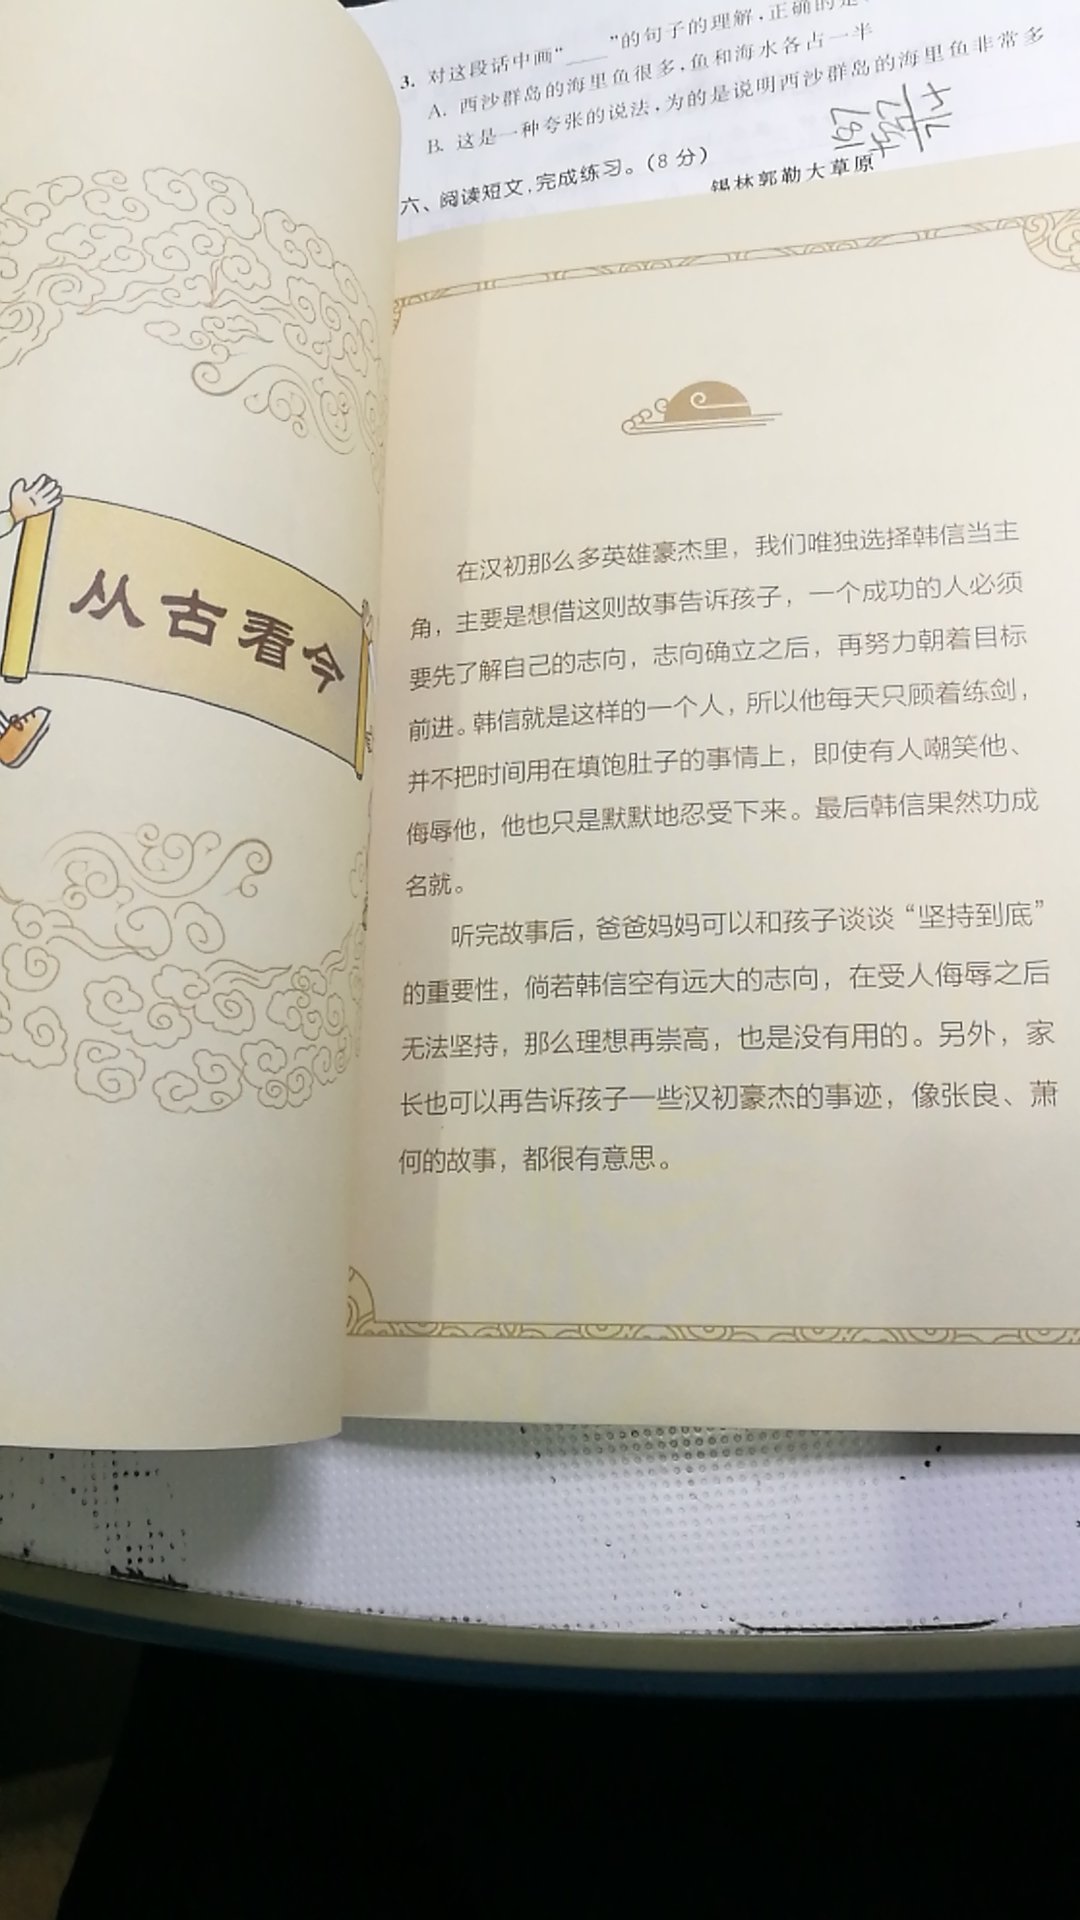 3. 对这段话中画“____”的句子的理解，正确的是
A. 西沙群岛的海里鱼很多，鱼和海水各占一半
B. 这是一种夸张的说法，为的是说明西沙群岛的海里鱼非常多
六、阅读短文，完成练习。（8 分）
锡林郭勒大草原
从古看今
在汉初那么多英雄豪杰里，我们唯独选择韩信当主
角，主要是想借这则故事告诉孩子，一个成功的人必须
要先了解自己的志向，志向确立之后，再努力朝着目标
前进。韩信就是这样的一个人，所以他每天只顾着练剑，
并不把时间用在填饱肚子的事情上，即使有人嘲笑他、
侮辱他，他也只是默默地忍受下来。最后韩信果然功成
名就。
听完故事后，爸爸妈妈可以和孩子谈谈“坚持到底”
的重要性，倘若韩信空有远大的志向，在受人侮辱之后
无法坚持，那么理想再崇高，也是没有用的。另外，家
长也可以再告诉孩子一些汉初豪杰的事迹，像张良、萧
何的故事，都很有意思。